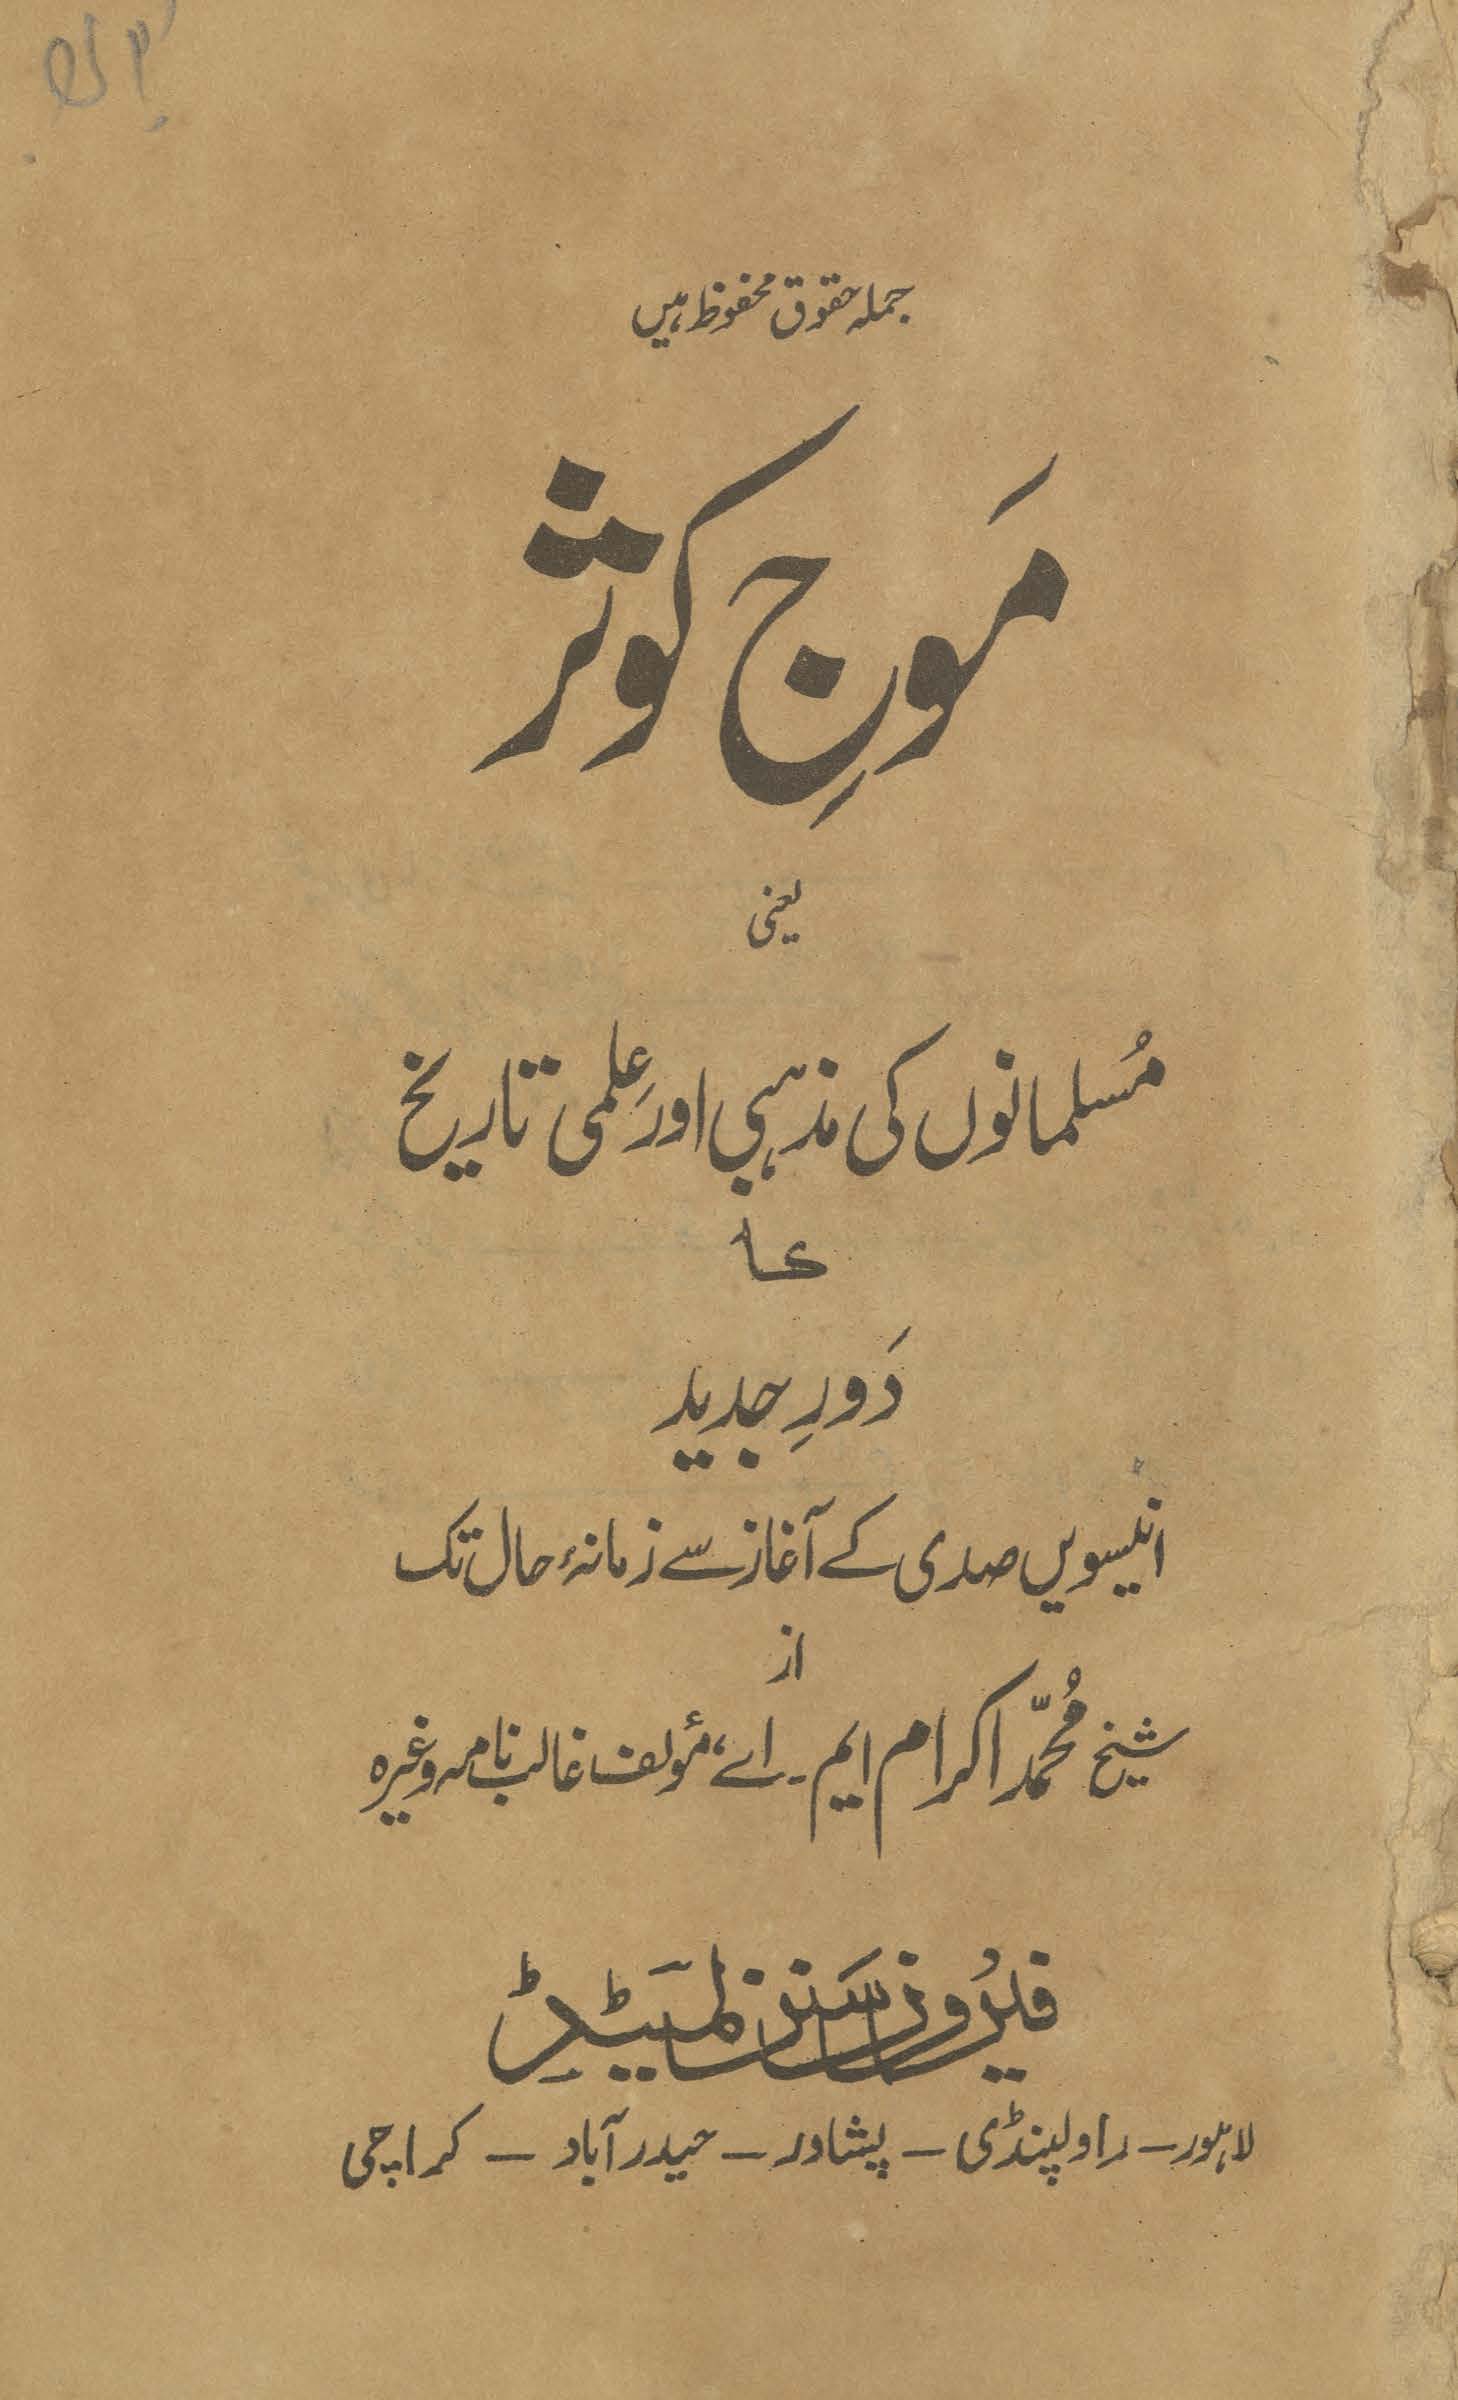 جملہ حقوق محفوظ ہیں
مَوجِ کوثر
یعنی
مُسلمانوں کی مذہبی اور عِلمی تاریخ
کا
دَورِ جدید
انیسویں صدی کے آغاز سے زمانۂ حال تک
از
شیخ مُحمّد اکرام ایم۔ اے، مؤلف غالب نامہ وغیرہ
فیرُوز سَنز لمیٹڈ
لاہور – راولپنڈی – پشاور – حیدر آباد – کراچی